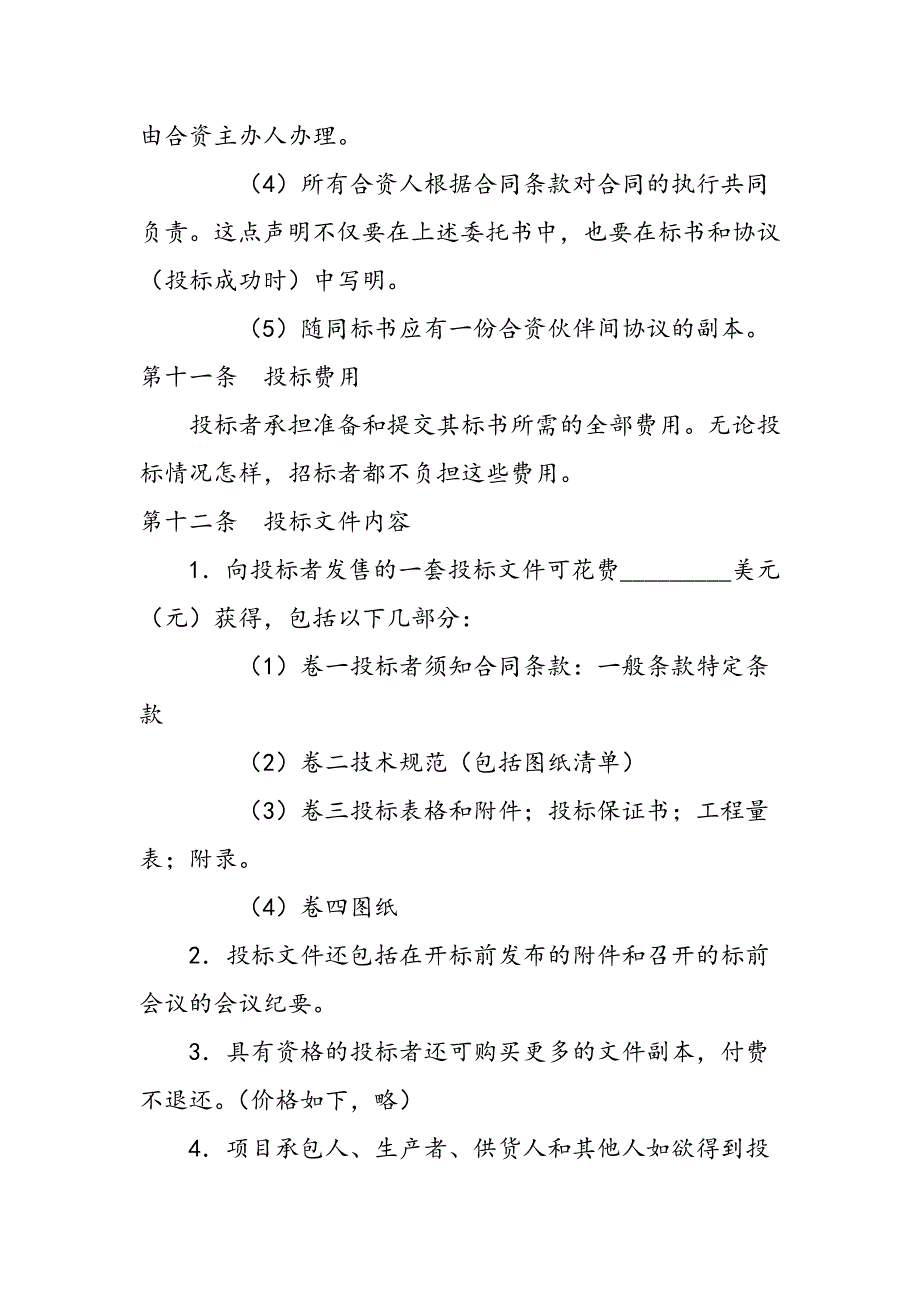 由合资主办人办理。
（4）所有合资人根据合同条款对合同的执行共同
负责。这点声明不仅要在上述委托书中，也要在标书和协议
（投标成功时）中写明。
（5）随同标书应有一份合资伙伴间协议的副本。
第十一条　投标费用
投标者承担准备和提交其标书所需的全部费用。无论投
标情况怎样，招标者都不负担这些费用。
第十二条　投标文件内容
1．向投标者发售的一套投标文件可花费_________美元
（元）获得，包括以下几部分：
（1）卷一投标者须知合同条款：一般条款特定条
款
（2）卷二技术规范（包括图纸清单）
（3）卷三投标表格和附件；投标保证书；工程量
表；附录。
（4）卷四图纸
2．投标文件还包括在开标前发布的附件和召开的标前
会议的会议纪要。
3．具有资格的投标者还可购买更多的文件副本，付费
不退还。（价格如下，略）
4．项目承包人、生产者、供货人和其他人如欲得到投